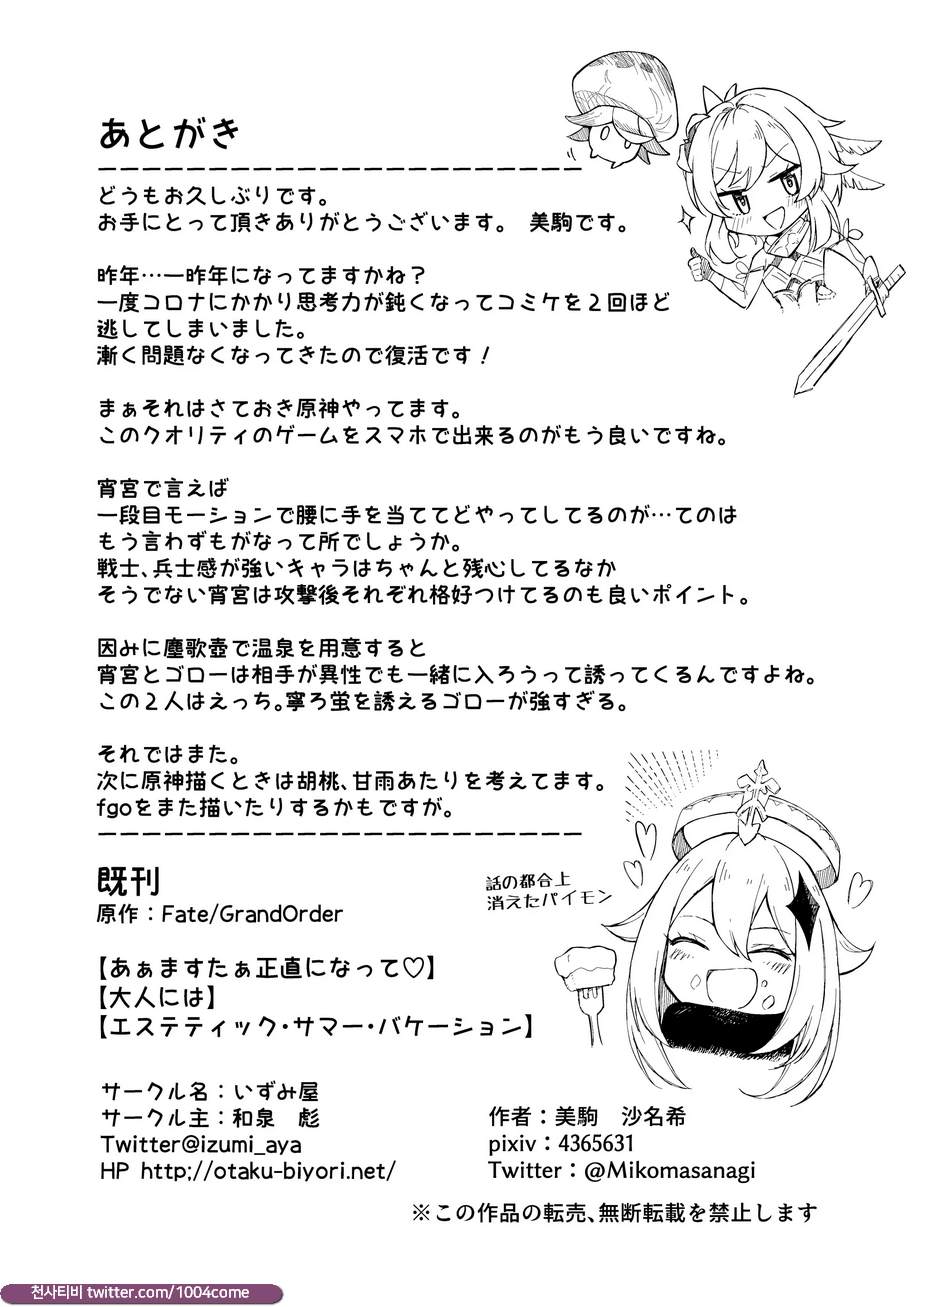 あとがき
どうもお久しぶりです。
お手にとって頂きありがとうございます。 美駒です。
昨年…一昨年になってますかね？
一度コロナにかかり思考力が鈍くなってコミケを２回ほど
逃してしまいました。
漸く問題なくなってきたので復活です！
まぁそれはさておき原神やってます。
このクオリティのゲームをスマホで出来るのがもう良いですね。
宵宮で言えば
一段目モーションで腰に手を当ててどやってしてるのが…てのは
もう言わずもがなって所でしょうか。
戦士、兵士感が強いキャラはちゃんと残心してるなか
そうでない宵宮は攻撃後それぞれ格好つけてるのも良いポイント。
因みに塵歌壺で温泉を用意すると
宵宮とゴローは相手が異性でも一緒に入ろうって誘ってくるんですよね。
この２人はえっち。寧ろ蛍を誘えるゴローが強すぎる。
それではまた。
次に原神描くときは胡桃、甘雨あたりを考えてます。
fgoをまた描いたりするかもですが。
話の都合上
消えたパイモン
既刊
原作：Fate/GrandOrder
【あぁますたぁ正直になって♡】
【大人には】
【エステティック・サマー・バケーション】
サークル名：いずみ屋
サークル主：和泉 彪
Twitter@izumi_aya
HP http;/otaku-biyori.net/
作者：美駒 沙名希
pixiv：4365631
Twitter：@Mikomasanagi
※この作品の転売、無断転載を禁止します
천사티비 twitter.com/1004come